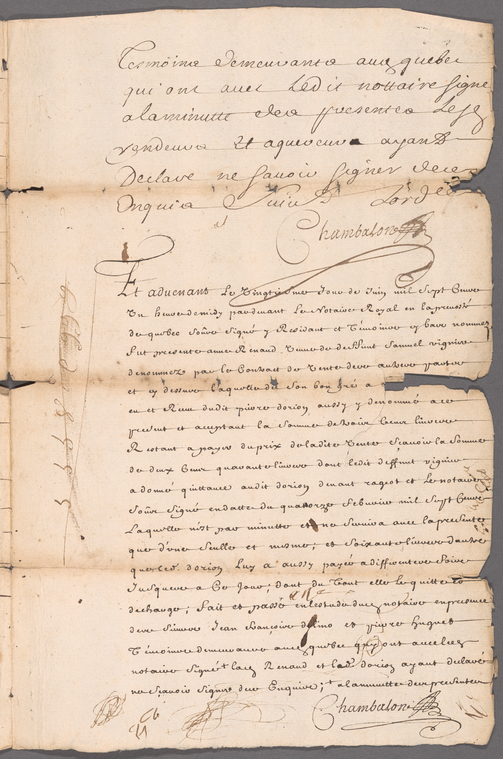 Tesmoins demeurants aud quebec
qui ont avec ledit nottaire signé
alaminutte des presentes lesd
vendeurs et aquereurs ayants
Declaré ne scavoir signer de ce
Enquis suivt lord
Chambalon
Et advenant le vingtiesme Jour de Juin mil sept Cens
un heure de midy pardevant le Notaire Royal en la prevosté
de quebec soubs signé y Residant et Témoins cy bas nommez
fut presente anne Renaud veuve de deffunt samuel vignier
denommez par le Contrat de vente de autre part
et cy dessus laquelle de son bon gré a
eu et Receu dudit pierre dorion aussy y denommé a ce
present et acceptant la somme de
Restant a payer du prix de ladite vente scavoir la somme
de deux Cens quarante livres dont ledit deffunt vignier
a donné quittance audit dorion devant rageot et le notaire
soubs signé en datte du quatorze febvrier mil sept Cens
Laquelle n'est par minutte et ne servira avec la presente
que d'une seulle et mesme; et soixante livres d'autre
que led. dorion luy a aussy payé a diff
Jusques a Ce Jour, dont du tout elle le quitte et
decharge; fait et passé en lestude dud notaire en presence
des sieurs Jean francois et pierre huguet
Témoins demeurans aud quebec qui ont avec led
notaire signé la d Renaud et led dorion ayant declaré
ne scavoir signer de ce Enquis, alaminutte des presentes
Chambalon